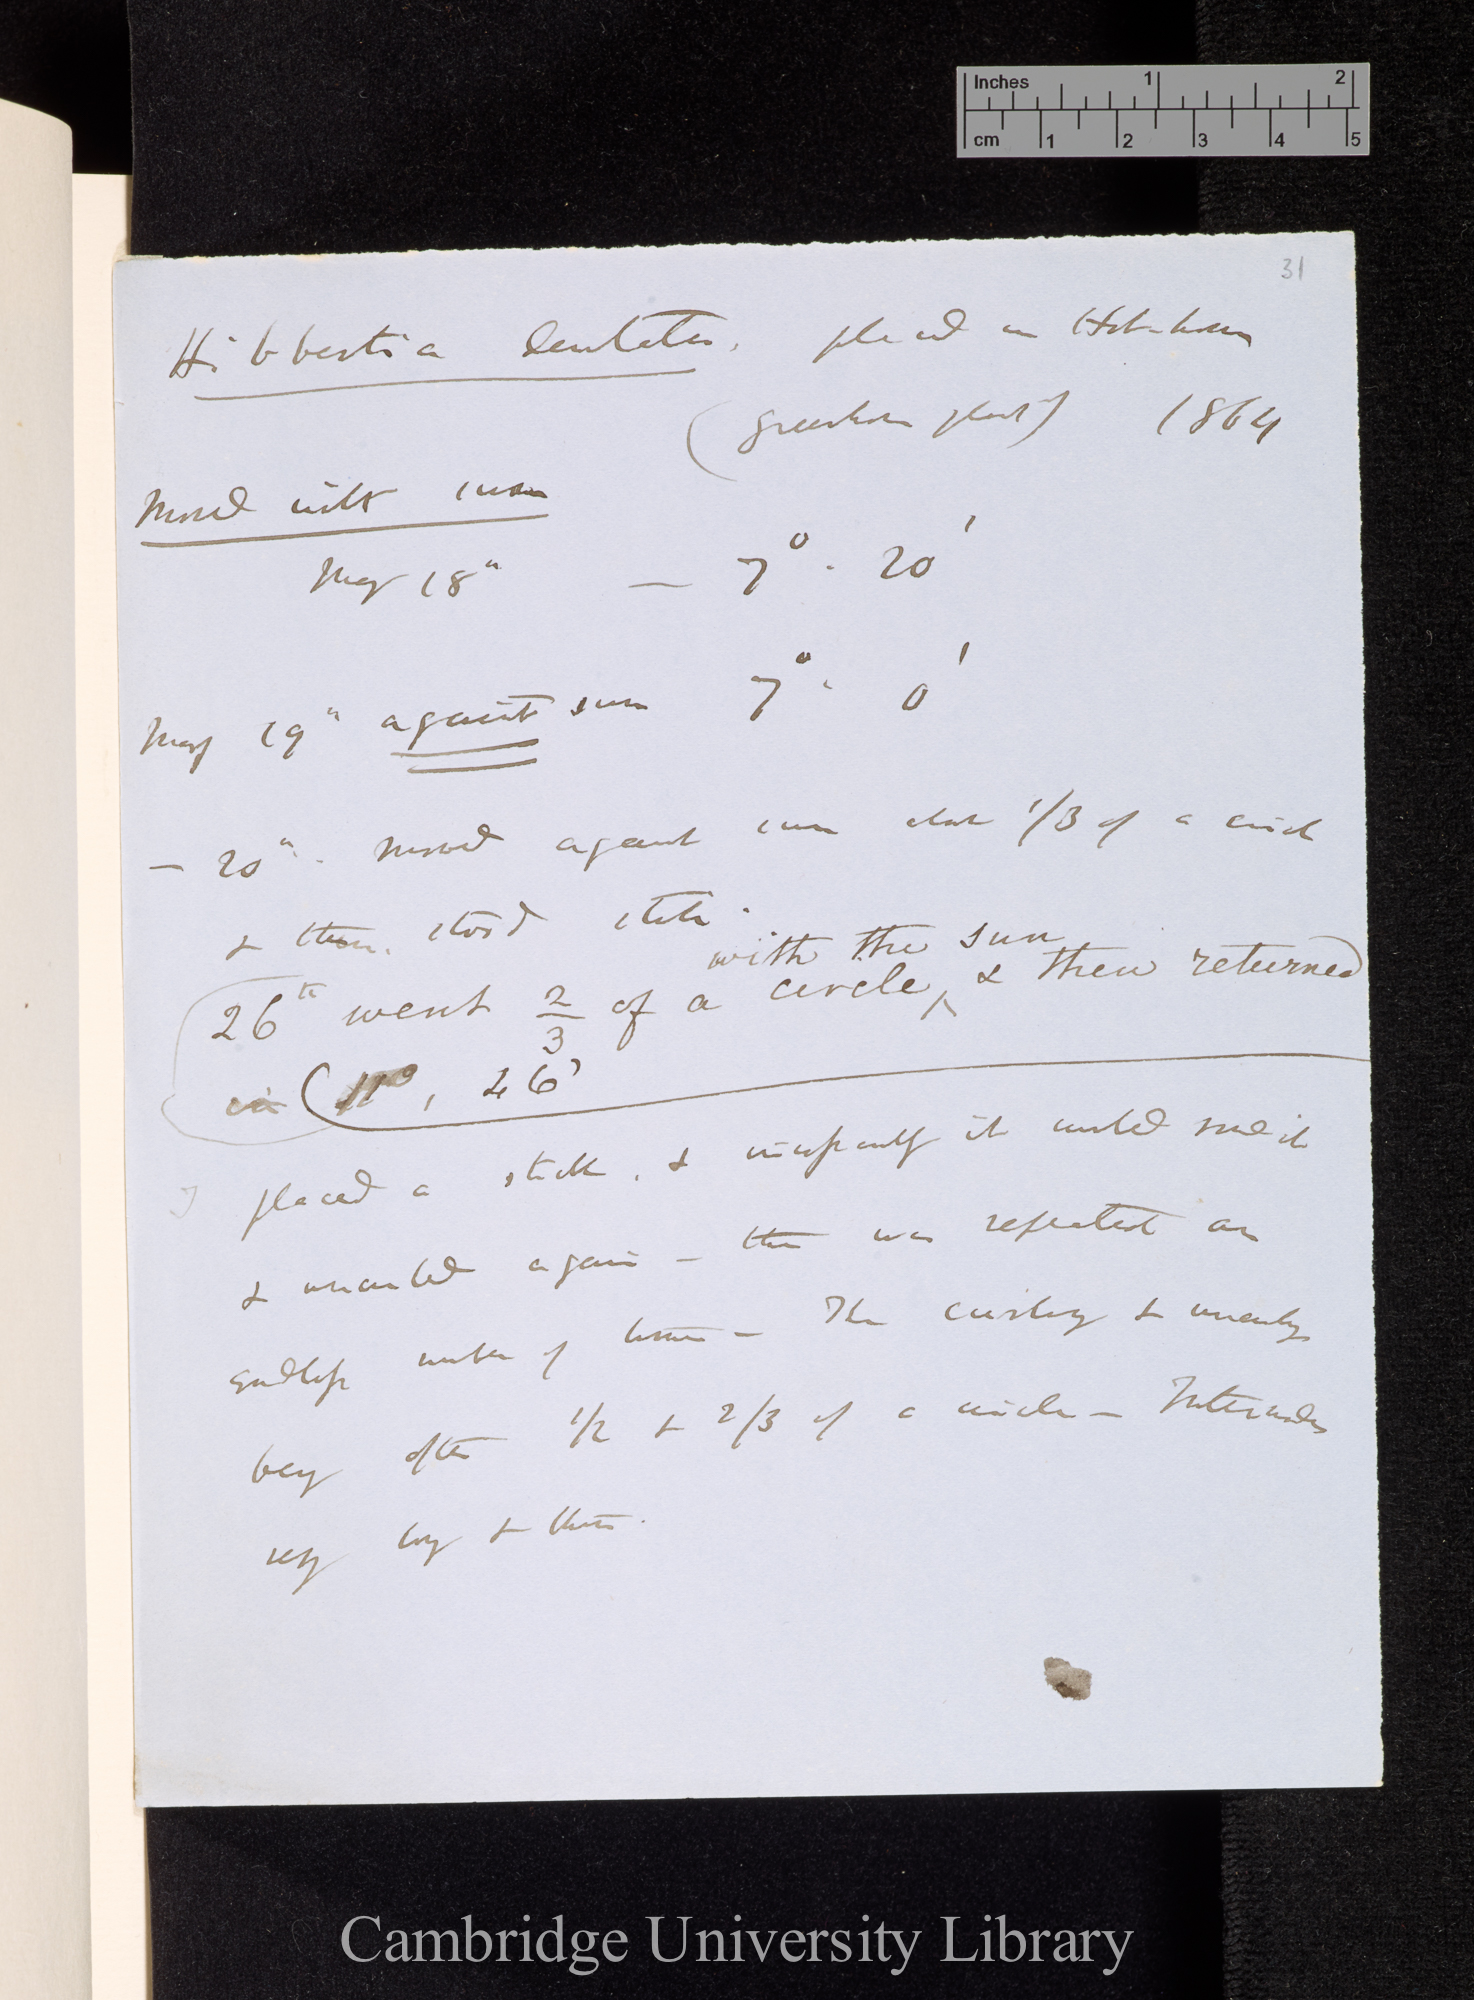 Inches 1 2
cm 1 2 3 4 5
31
Hibbertia dentata, placed in Hot-house
(Greenhouse plant) 1864
Moved with sun
May 18th — 7° . 20'
May 19th against sun 7° . 0'
— 20th. Moved against sun about 1/3 of a circle
& then stood still.
with the sun
26th went 2/3 of a circle, & then returned
in (11°, 46'
I placed a stick, & it would round it
& again — this was repeated an
endless number of times — The curling &
being often 1/2 & 2/3 of a circle — Internodes
very long & thin.
Cambridge University Library